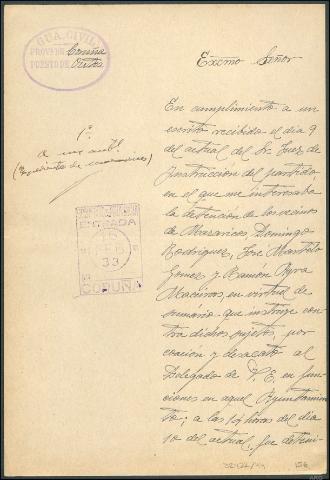 GUA. CIVIL
Coruña
PUESTO DE Ortos
Excmo Señor
1ª
a
(Expediente de )
ENTRADA
FEB
33
CORUÑA
En cumplimiento a un
escrito recibido el dia 9
del actual del Sr Juez de
instrucción del partido,
en el que me interesaba
la detencion de los vecinos
de Mazaricos, Domingo
Rodriguez, José Mantelo
Gomez y Ramon Ayra
Maceiras, en virtud de
sumario que instruye con
tra dichos sujetos, por
coacion y desacato al
Delegado de V. E. en fun
ciones en aquel Ayuntamien
to; a las 14 horas del dia
10 del actual, fue deteni-